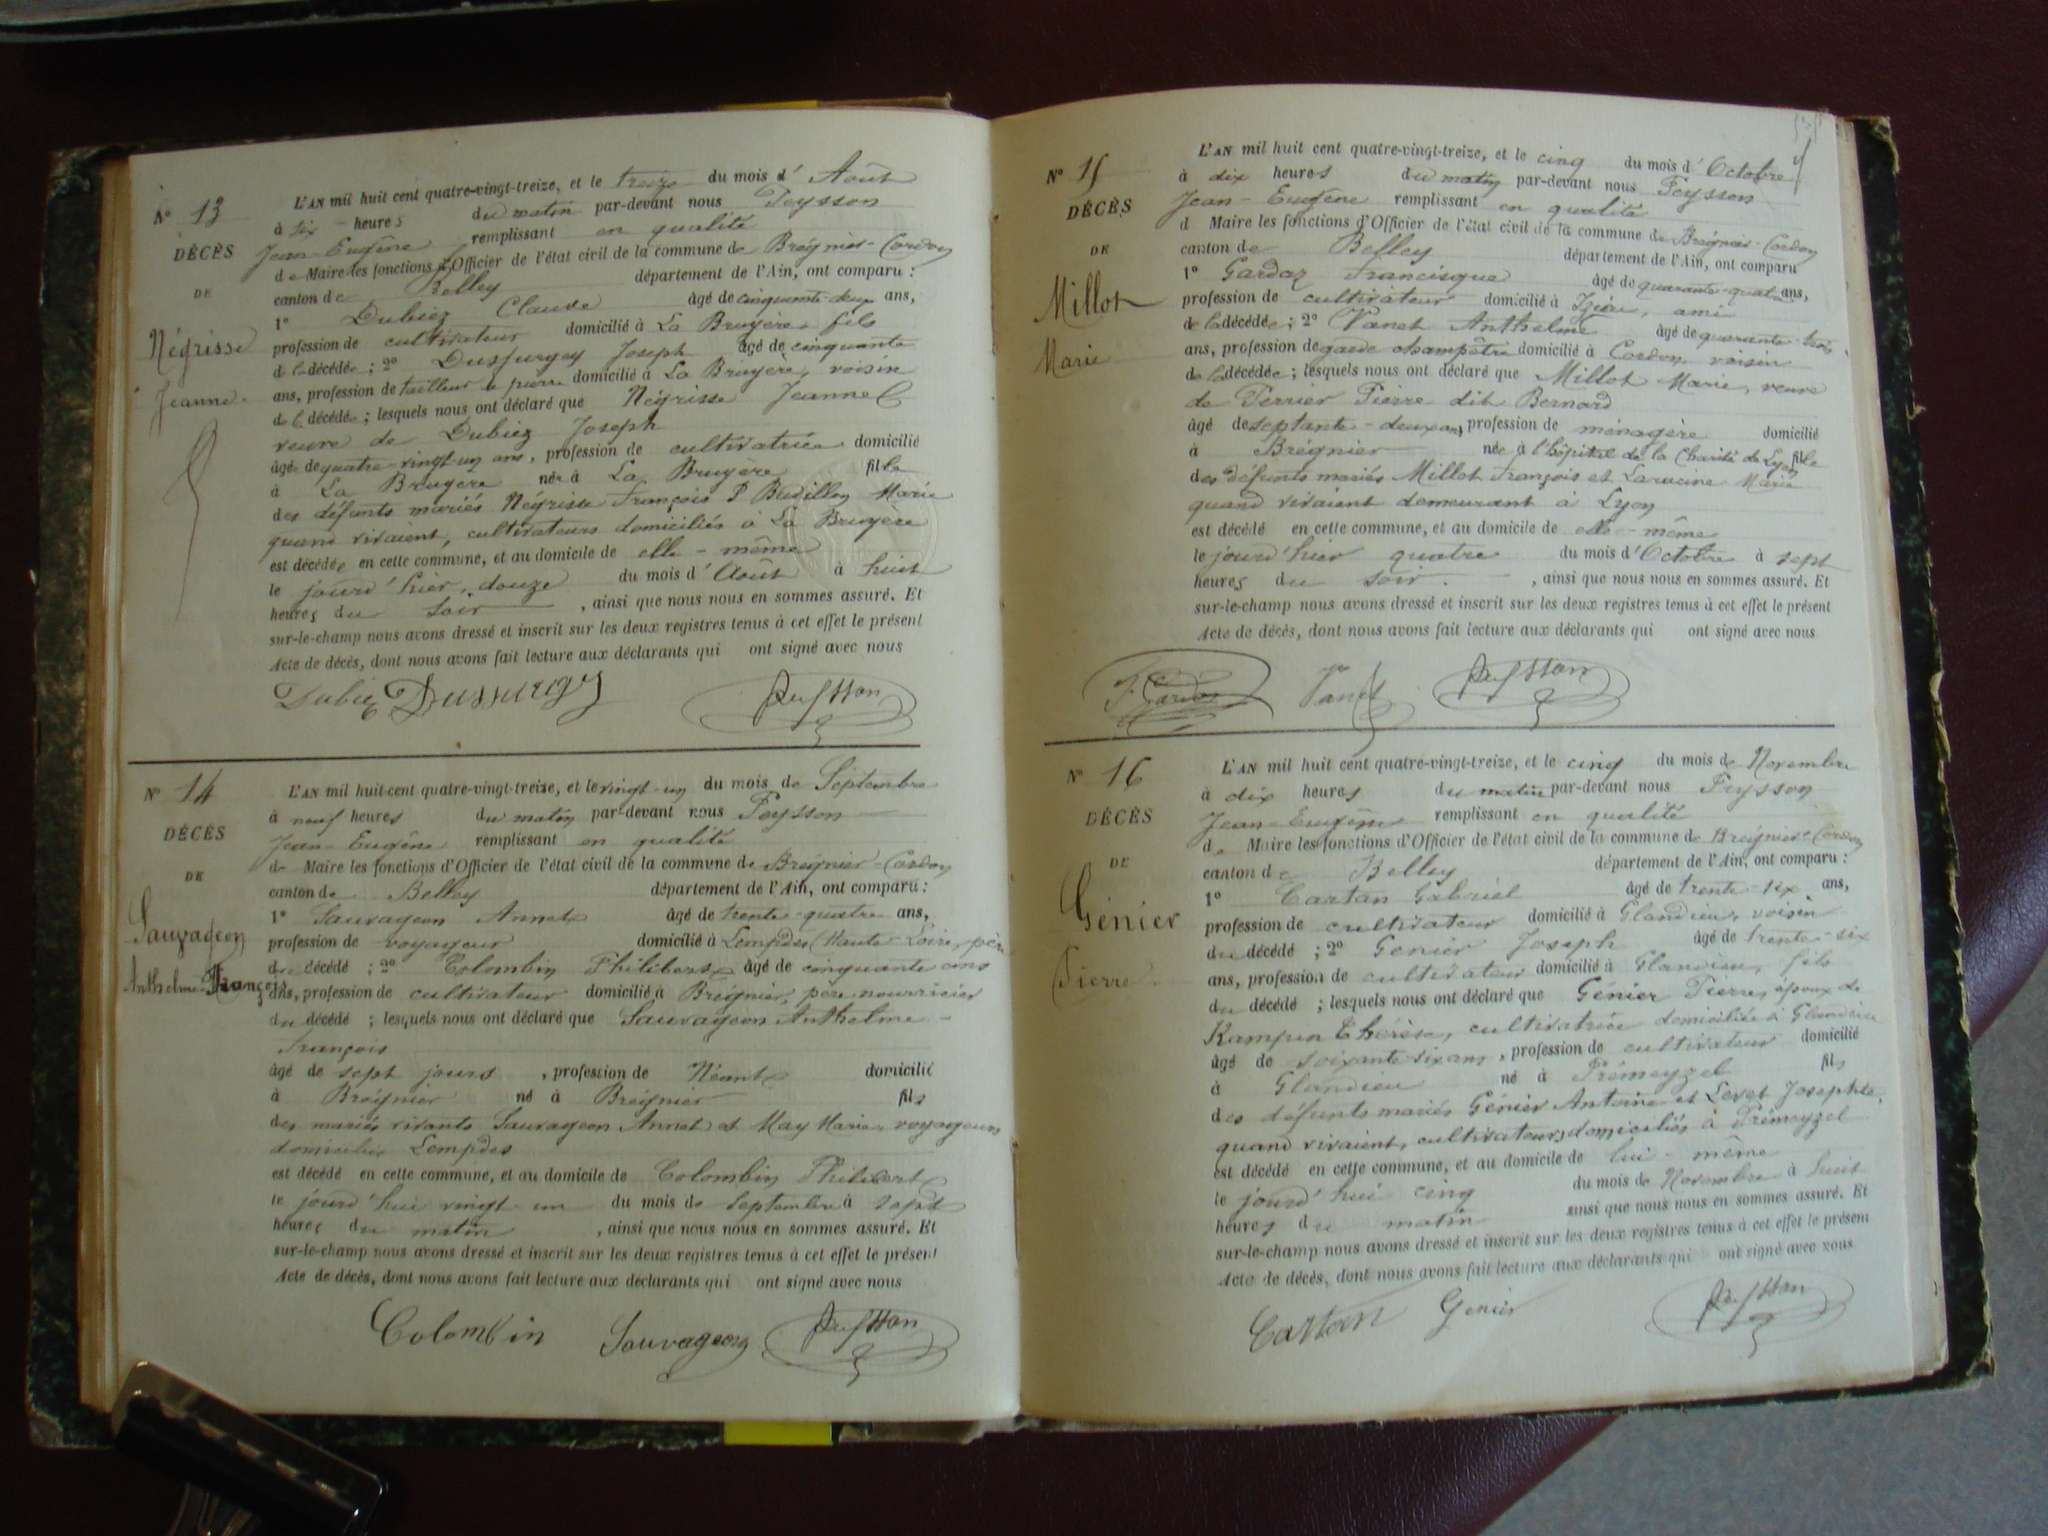 N° 13
DÉCÈS
DE
Négrisse
Jeanne
L'AN mil huit cent quatre-vingt-treize, et le treize du mois d'Août
à six heures du matin par-devant nous Peysson
Jean-Eugène remplissant en qualité
de Maire les fonctions d'Officier de l'état civil de la commune de Brégnier-Cordon
canton de Belley département de l'Ain, ont comparu :
1° Dubiez Claude âgé de cinquante-deux ans,
profession de cultivateur domicilié à La Bruyère, fils
de la décédée ; 2° Dussurgey Joseph âgé de cinquante
ans, profession de tailleur de pierre domicilié à La Bruyère, voisin
de la décédée ; lesquels nous ont déclaré que Négrisse Jeanne
veuve de Dubiez Joseph
âgé de quatre-vingt-un ans, profession de cultivatrice domicilié
à La Bruyère née à La Bruyère fille
des défunts mariés Négrisse François & Budillon Marie
quand vivaient, cultivateurs domiciliés à La Bruyère
est décédée en cette commune, et au domicile de elle-même
le jourd'hier, douze du mois d'Août à huit
heures du soir , ainsi que nous nous en sommes assuré. Et
sur-le-champ nous avons dressé et inscrit sur les deux registres tenus à cet effet le présent
Acte de décès, dont nous avons fait lecture aux déclarants qui ont signé avec nous
Dubiez Dussurgey Peysson
N° 14
DÉCÈS
DE
Sauvageon
Anthelme-François
L'AN mil huit cent quatre-vingt-treize, et le vingt-un du mois de Septembre
à neuf heures du matin par-devant nous Peysson
Jean-Eugène remplissant en qualité
de Maire les fonctions d'Officier de l'état civil de la commune de Brégnier-Cordon
canton de Belley département de l'Ain, ont comparu :
1° Sauvageon Annet âgé de trente-quatre ans,
profession de voyageur domicilié à Lempdes (Haute-Loire, père
du décédé ; 2° Colombin Philibert âgé de cinquante ans
ans, profession de cultivateur domicilié à Brégnier, père nourricier
du décédé ; lesquels nous ont déclaré que Sauvageon Anthelme-
François
âgé de sept jours , profession de Néant domicilié
à Brégnier né à Brégnier fils
des mariés vivants Sauvageon Annet et May Marie, voyageurs
domiciliés Lempdes
est décédé en cette commune, et au domicile de Colombin Philibert
le jourd'hui vingt un du mois de Septembre à sept
heures du matin , ainsi que nous nous en sommes assuré. Et
sur-le-champ nous avons dressé et inscrit sur les deux registres tenus à cet effet le présent
Acte de décès, dont nous avons fait lecture aux déclarants qui ont signé avec nous
Colombin Sauvageon Peysson
N° 15
DÉCÈS
DE
Millot
Marie
L'AN mil huit cent quatre-vingt-treize, et le cinq du mois d'Octobre
à dix heures du matin par-devant nous Peysson
Jean-Eugène remplissant en qualité
d Maire les fonctions d'Officier de l'état civil de la commune de Brégnier-Cordon
canton de Belley département de l'Ain, ont comparu
1° Gardaz Francisque âgé de quarante-quatre ans,
profession de cultivateur domicilié à Izieu, ami
de la décédée ; 2° Vanet Anthelme âgé de quarante-trois
ans, profession de garde champêtre domicilié à Cordon, voisin
de la décédée ; lesquels nous ont déclaré que Millot Marie, veuve
de Perrier Pierre dit Bernard
âgé de septante-deux ans, profession de ménagère domicilié
à Brégnier née à l'hôpital de la Charité de Lyon fille
des défunts mariés Millot François et Marie
quand vivaient demeurant à Lyon
est décédé en cette commune, et au domicile de elle-même
le jourd'hier quatre du mois d'Octobre à sept
heures du soir. , ainsi que nous nous en sommes assuré. Et
sur-le-champ nous avons dressé et inscrit sur les deux registres tenus à cet effet le présent
Acte de décès, dont nous avons fait lecture aux déclarants qui ont signé avec nous
Vanet Peysson
N° 16
DÉCÈS
DE
Génier
Pierre
L'AN mil huit cent quatre-vingt-treize, et le cinq du mois de Novembre
à dix heures du matin par-devant nous Peysson
Jean-Eugène remplissant en qualité
de Maire les fonctions d'Officier de l'état civil de la commune de Brégnier-Cordon
canton de Belley département de l'Ain, ont comparu :
1° Cartan Gabriel âgé de trente-six ans,
profession de cultivateur domicilié à Glandieu, voisin
du décédé ; 2° Génier Joseph âgé de trente-six
ans, profession de cultivateur domicilié à Glandieu, fils
du décédé ; lesquels nous ont déclaré que Génier Pierre, époux de
Rampin Thérèse, cultivatrice domiciliée à Glandieu
âgé de soixante-six ans, profession de cultivateur domicilié
à Glandieu né à Prémeyzel fils
des défunts mariés Génier Antoine et Levet Josephte,
quand vivaient, cultivateurs domiciliés à Prémeyzel
est décédé en cette commune, et au domicile de lui-même
le jourd'hui cinq du mois de Novembre à huit
heures du matin ainsi que nous nous en sommes assuré. Et
sur-le-champ nous avons dressé et inscrit sur les deux registres tenus à cet effet le présent
Acte de décès, dont nous avons fait lecture aux déclarants qui ont signé avec nous
Cartan Genier Peysson